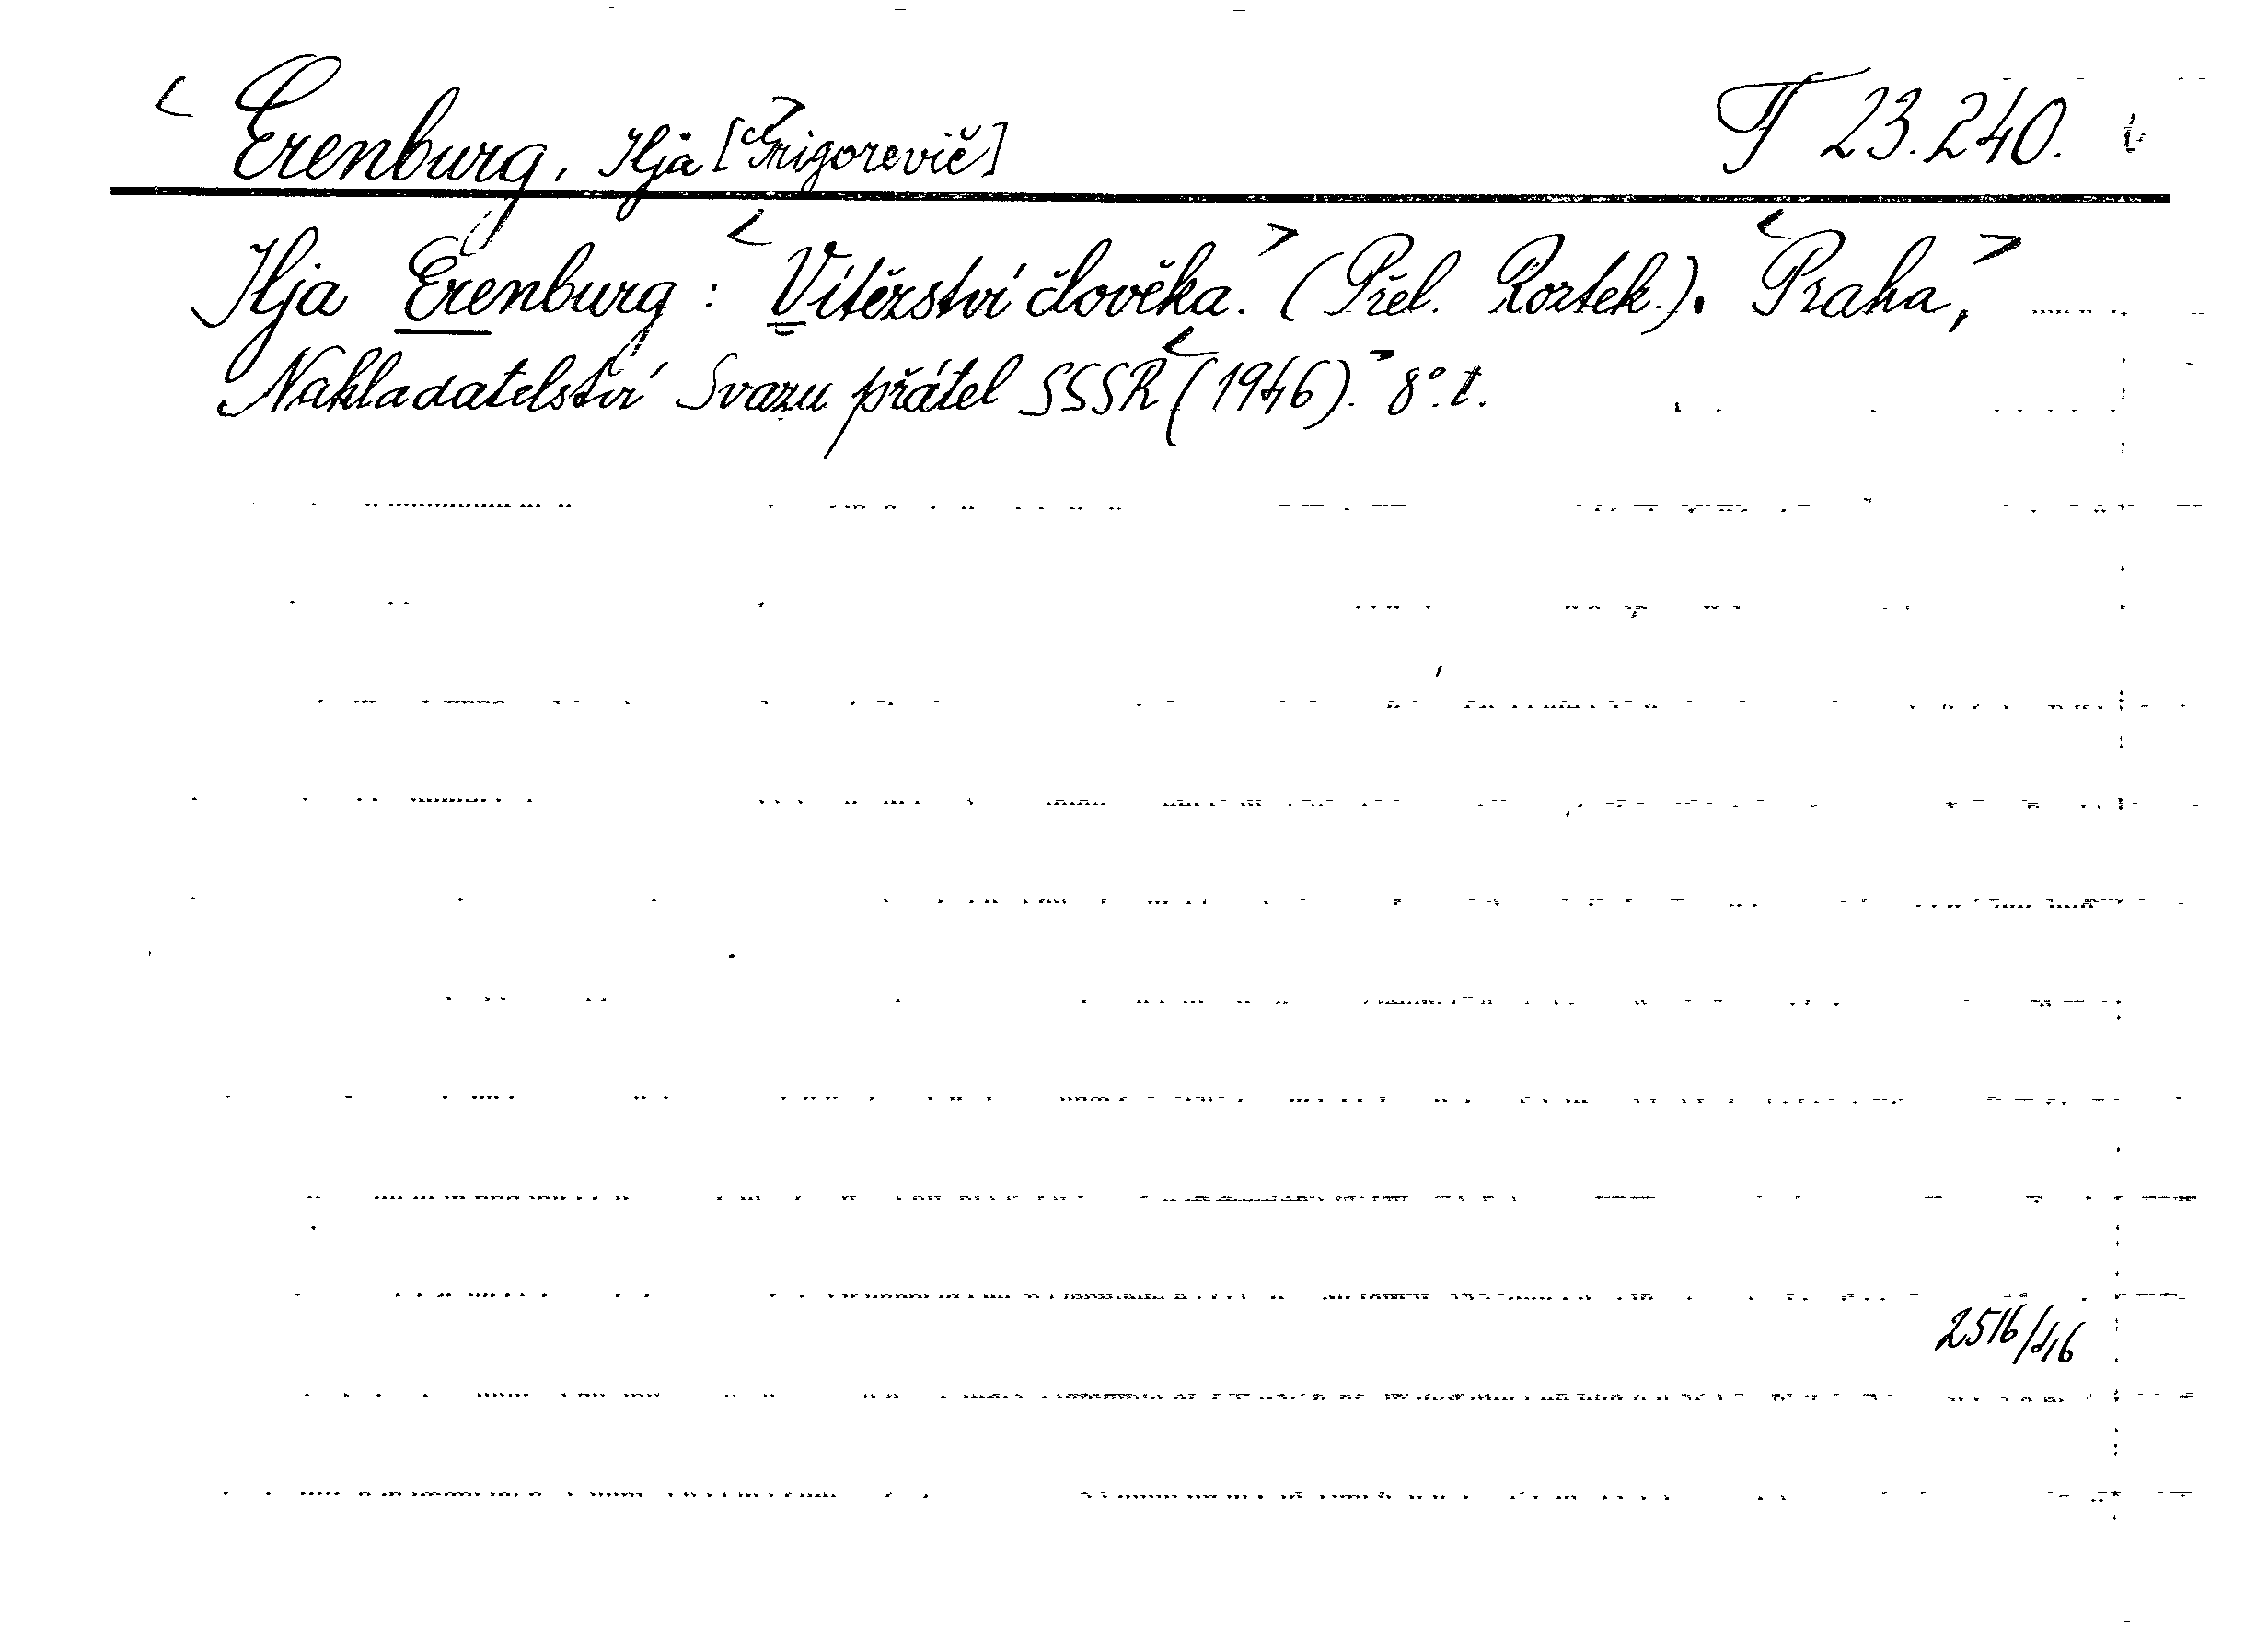 < Erenburg, Ilja [Grigorevič] > T 23.240.
Ilja Erenburg: < Vítězství člověka. > (Přel. Roztek.). < Praha, >
Nakladatelství Svazu přátel SSSR < (1946). > 8°. t.
2516/46